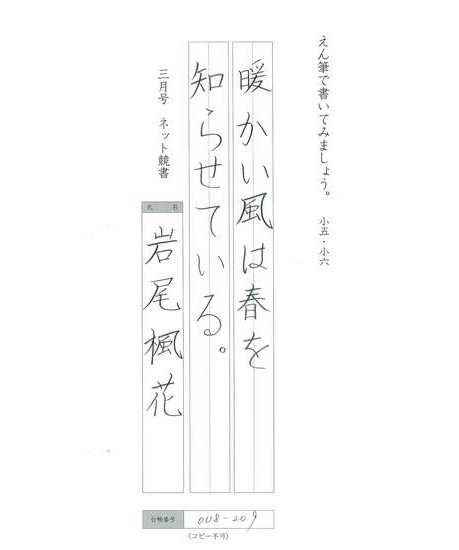 えん筆で書いてみましょう。 小五・小六
暖かい風は春を
知らせている。
三月号 ネット競書
氏 名
岩尾楓花
台帳番号 008-209
(コピー不可)